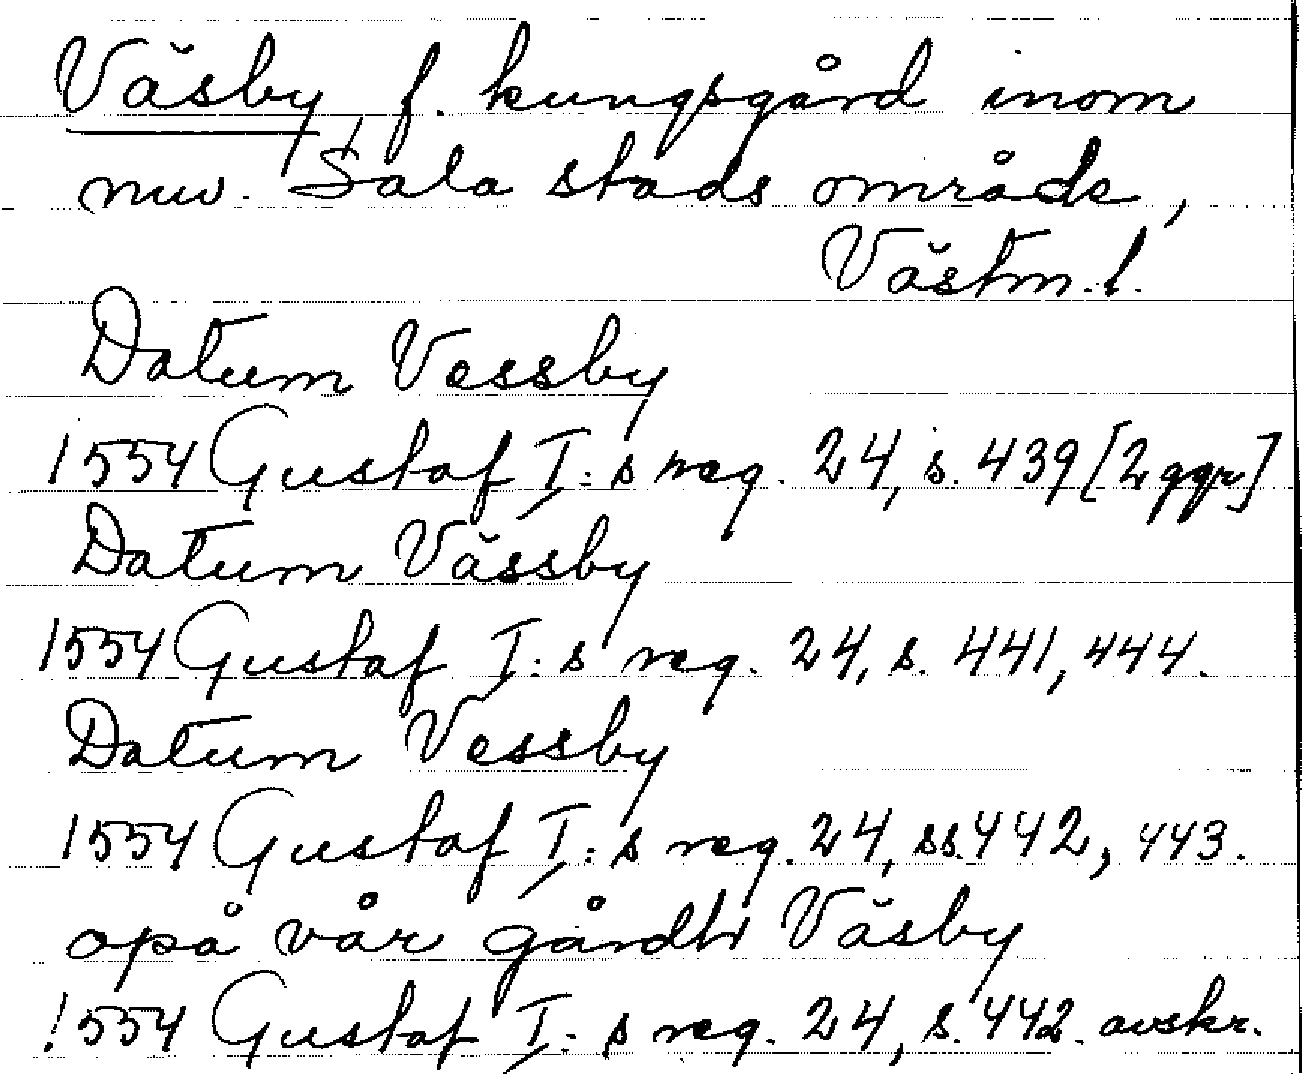 Väsby, f. kungsgård inom
nuv. Sala stads område,
Västm. l.
Datum Vessby
1554 Gustaf I:s reg. 24, s. 439 [2 ggr]
Datum Vässby
1554 Gustaf I:s reg. 24, s. 441, 444.
Datum Vessby
1554 Gustaf I:s reg. 24, ss. 442, 443.
opå vår gårdh Väsby
1554 Gustaf I:s reg. 24, s. 442. avskr.